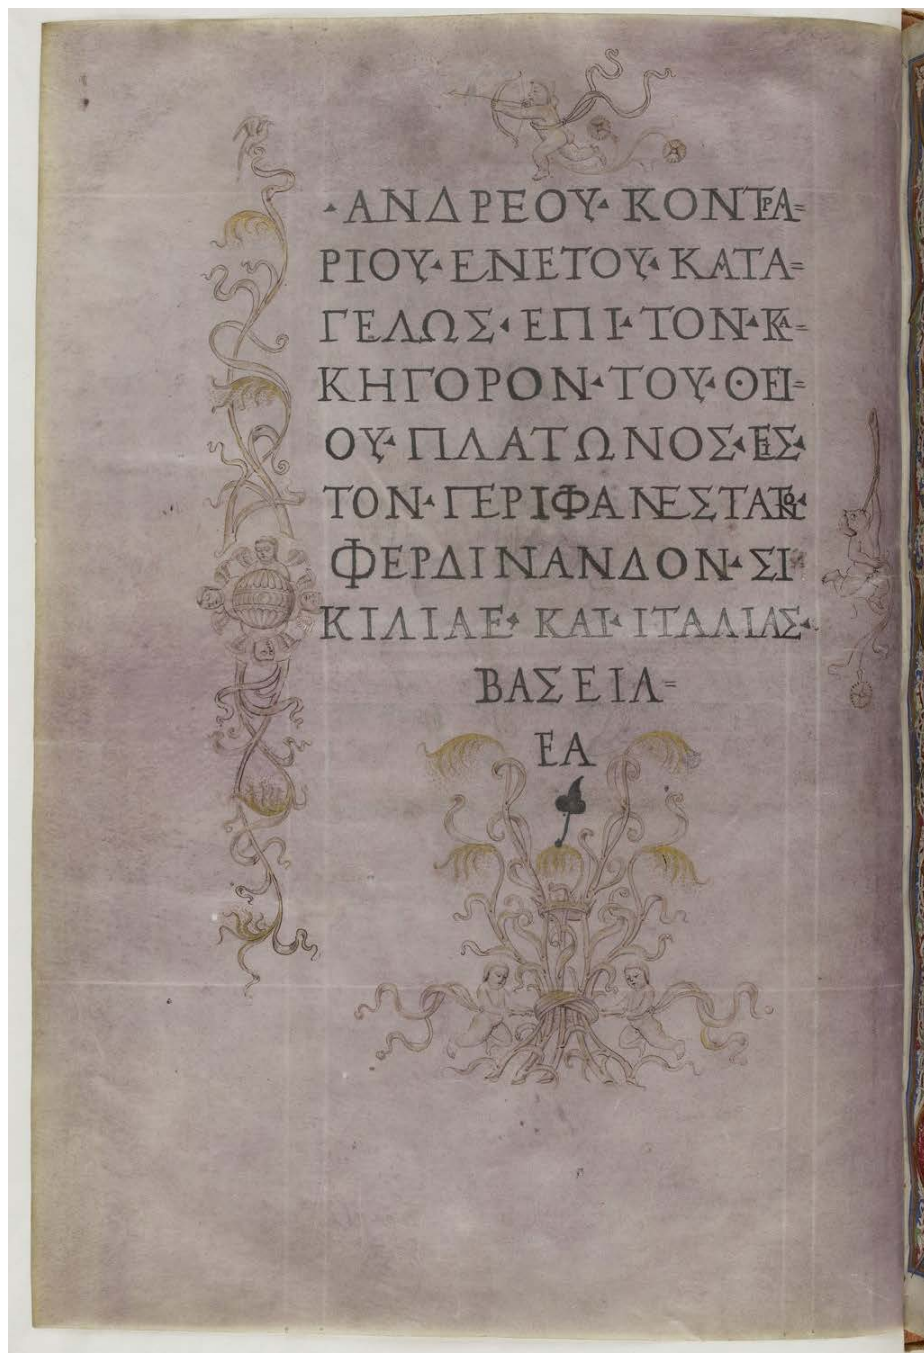 ·ΑΝΔΡΕΟΥ·ΚΟΝΤΡΑ=
ΡΙΟΥ·ΕΝΕΤΟΥ·ΚΑΤΑ=
ΓΕΛΩΣ·ΕΠΙ·ΤΟΝ·ΚΑ=
ΚΗΓΟΡΟΝ·ΤΟΥ·ΘΕΙ=
ΟΥ·ΠΛΑΤΩΝΟΣ·ΕΙΣ·
ΤΟΝ·ΠΕΡΙΦΑΝΕΣΤΑΤΟΝ·
ΦΕΡΔΙΝΑΝΔΟΝ·ΣΙ
ΚΙΛΙΑΕ·ΚΑΙ·ΙΤΑΛΙΑΣ·
ΒΑΣΕΙΛ=
ΕΑ